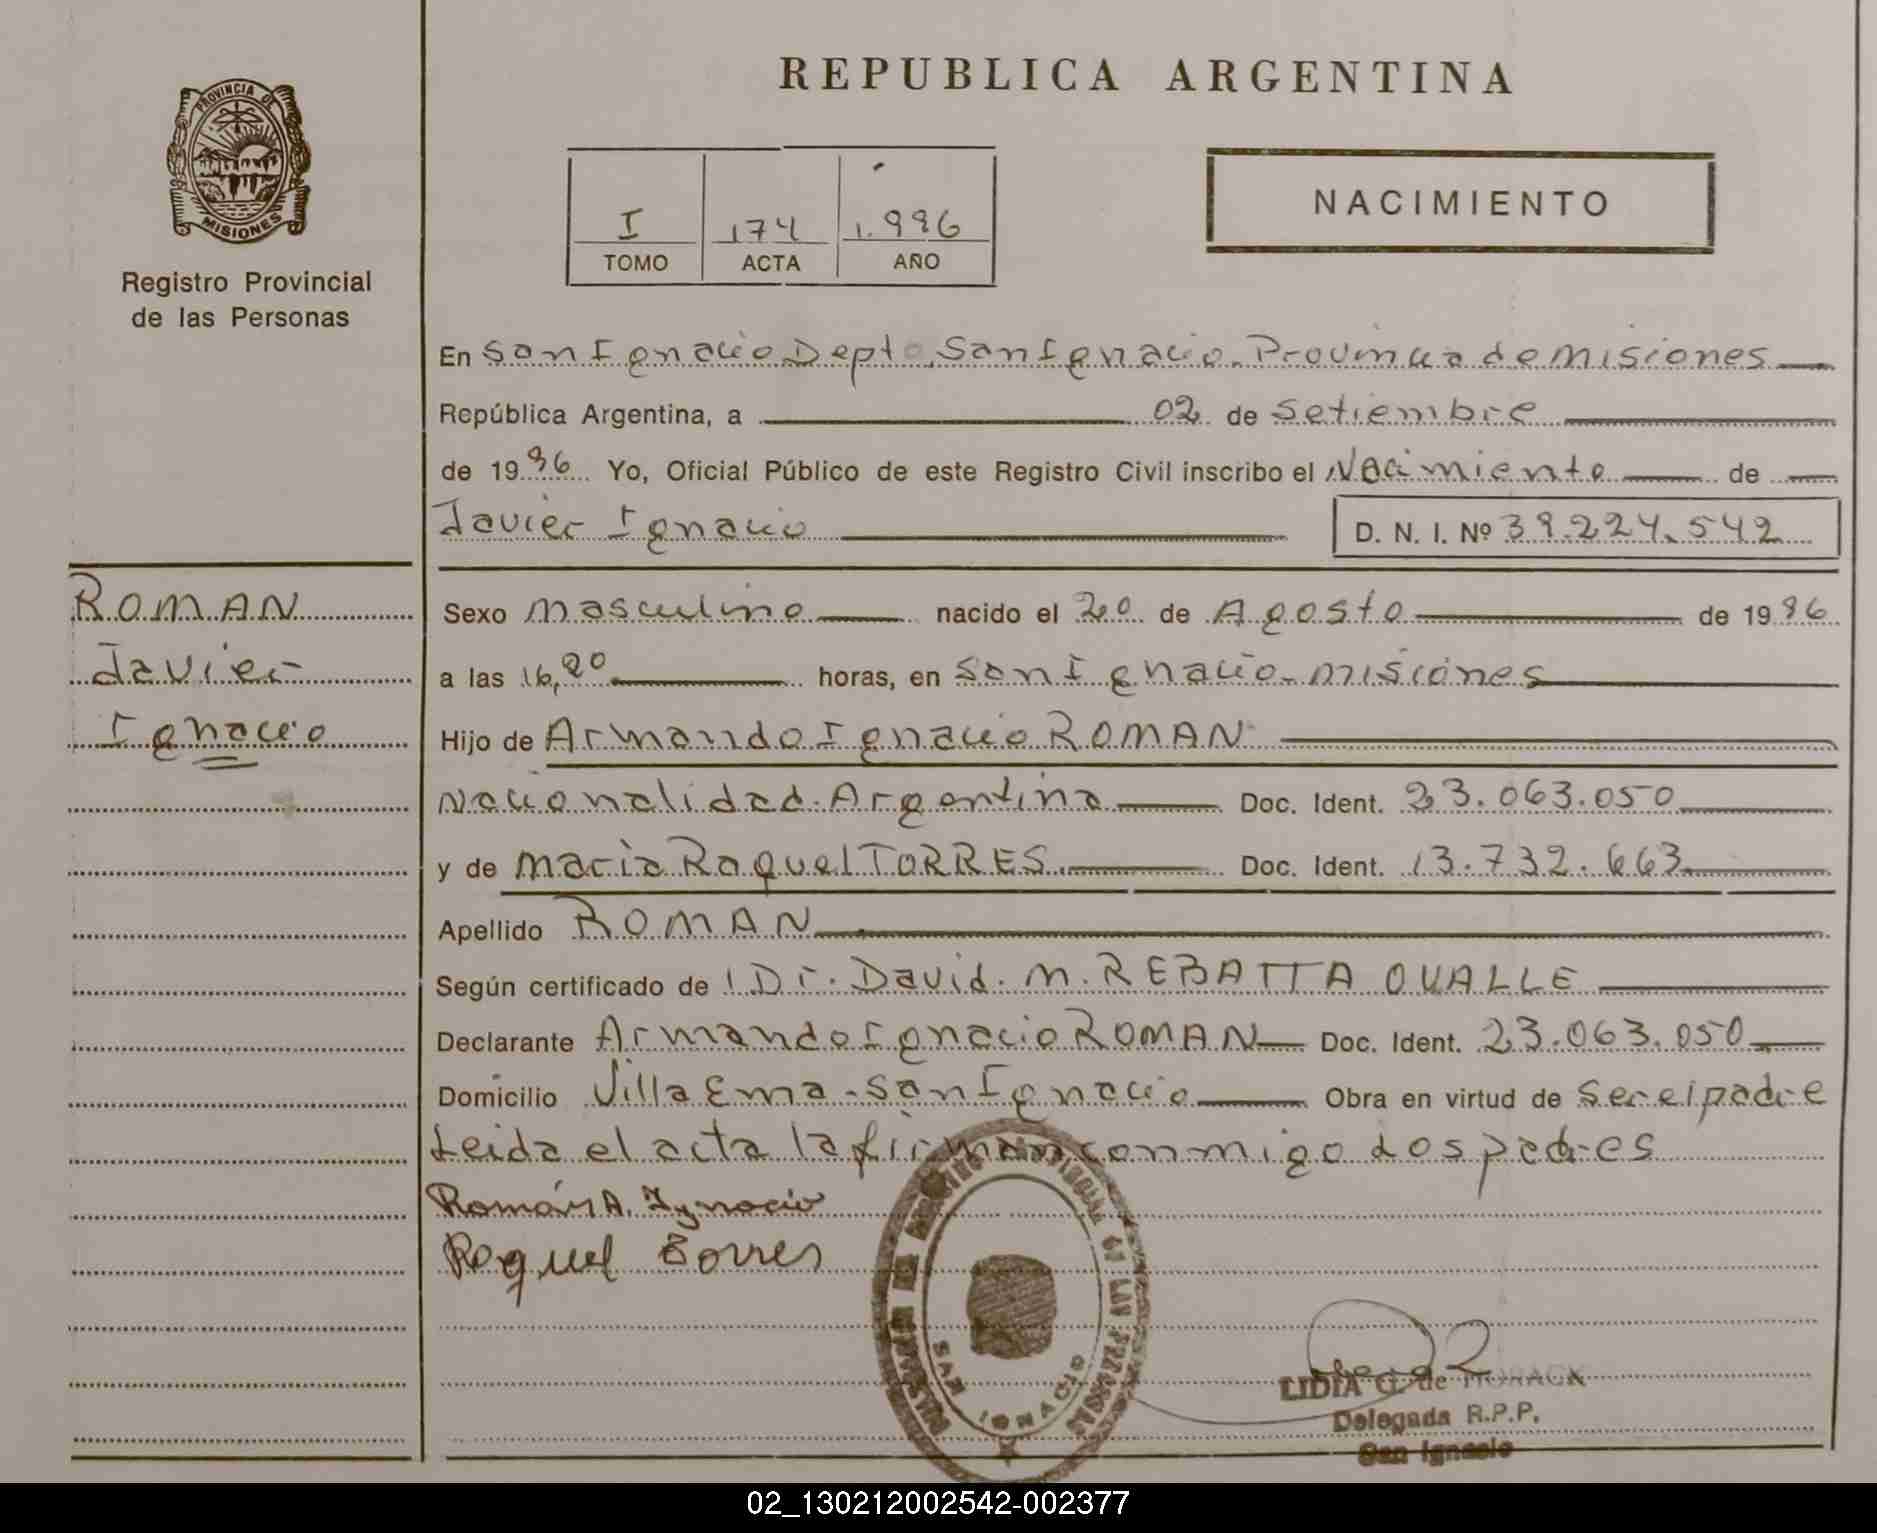 PROVINCIA DE
MISIONES
Registro Provincial
de las Personas
REPUBLICA ARGENTINA
I 174 1.996
TOMO ACTA AÑO
NACIMIENTO
En San Ignacio Depto. San Ignacio. Provincia de misiones
República Argentina, a 02 de Setiembre
de 1996 Yo, Oficial Público de este Registro Civil inscribo el Nacimiento de
Javier Ignacio D. N. I. Nº 39.224.542
ROMAN
Javier
Ignacio
Sexo masculino nacido el 20 de Agosto de 1996
a las 16,20 horas, en San Ignacio-misiones
Hijo de Armando Ignacio ROMAN
Nacionalidad. Argentina Doc. Ident. 23.063.050
y de maria Raquel TORRES Doc. Ident. 13.732.663
Apellido ROMAN
Según certificado de Dr. David. M. REBATTA OVALLE
Declarante Armando Ignacio ROMAN Doc. Ident. 23.063.050
Domicilio Villa Ema - San Ignacio Obra en virtud de ser el padre
Leida el acta la firman conmigo Los padres
Román A. Ignacio
Raquel Torres
SAN IGNACIO
LIDIA G. de HORACK
Delegada R.P.P.
San Ignacio
02_130212002542-002377